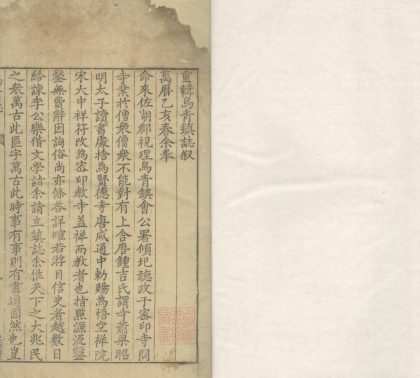 重輯烏青鎮誌叙
萬曆乙亥春余奉
命來佐湖郡視理烏青鎮會公署傾圯聽政于密印寺問
寺業於僧衆僧衆不能對有上舍唐鍾吉氏謂寺蕭梁昭
明太子讀書處捨為賢德寺唐咸通中勅賜為悟空禪院
宋大中祥符改為密印教寺盖禪而教者也指顧源流鑿
鑿無嘗辭因論俗尚亦條答詳確若游目信史者越數日
給諫李公樂偕文學諸余請立鎮誌余惟天下之大兆民
之衆萬古此區宇萬古此時事有事則有書道固然也豈